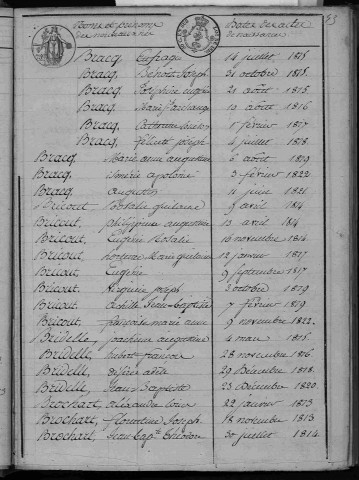 Noms et prénoms des individus nés
Dates des actes de naissances
Bracq, Eufrasie 14 juillet 1815
Bracq, Benoit Joseph 31 octobre 1815
Bracq, Joséphine 21 août 1815
Bracq, Marie 10 août 1816
Bracq, Catherine 1er février 1817
Bracq, Félicité joseph 4 juillet 1818
Bracq, Marie anne augustine 6 août 1819
Bracq, Aimérie apoline 3 février 1822
Bracq, augustin 11 juin 1821
Bricout, Rosalie guilaine 9 avril 1814
Bricout, philippine augustine 13 avril 1814
Bricout, Eugénie Rosalie 16 novembre 1814
Bricout, hortense Marie guilaine 12 janvier 1817
Bricout, Eugénie 9 Septembre 1817
Bricout, joseph 2 octobre 1819
Bricout, achille Jean-baptiste 7 février 1819
Bricout, françoise marie anne 9 novembre 1822
Bridelle, augustine 4 mai 1815
Bridelle, hubert françois 28 novembre 1816
Bridelle, désirée 29 Décembre 1818
Bridelle, Jean Baptiste 23 Décembre 1820
Brochart, alexandre louis 22 janvier 1813
Brochart, florentine Joseph 18 novembre 1813
Brochart, Jean bapte Théodore 30 juillet 1814